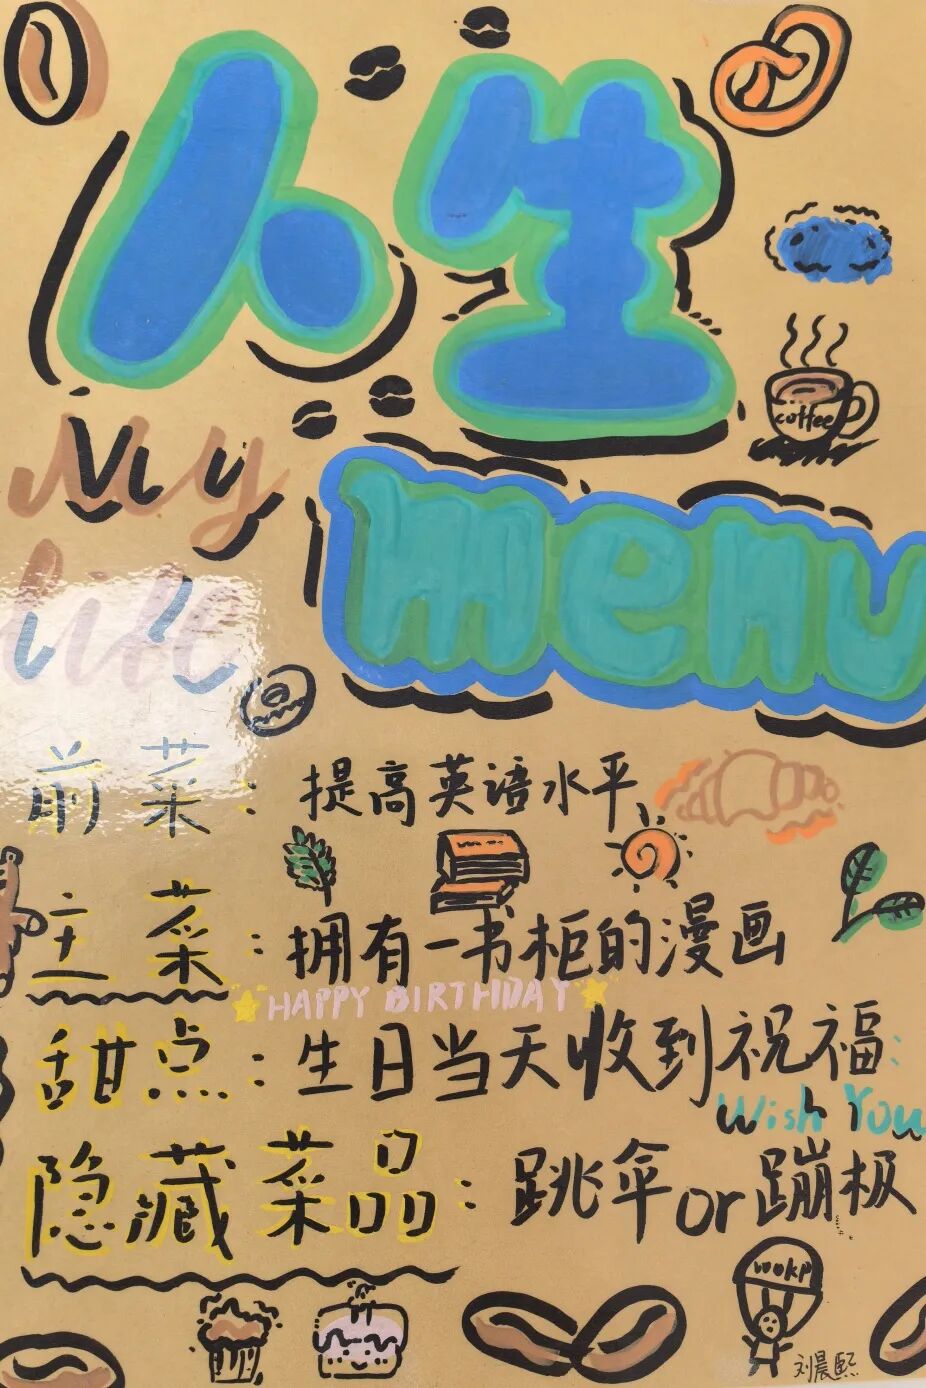 人生
coffee
My
life
menu
前菜：提高英语水平
主菜：拥有一书柜的漫画
HAPPY BIRTHDAY
甜点：生日当天收到祝福：
Wish You
隐藏菜品：跳伞or蹦极
wokp
刘晨熙